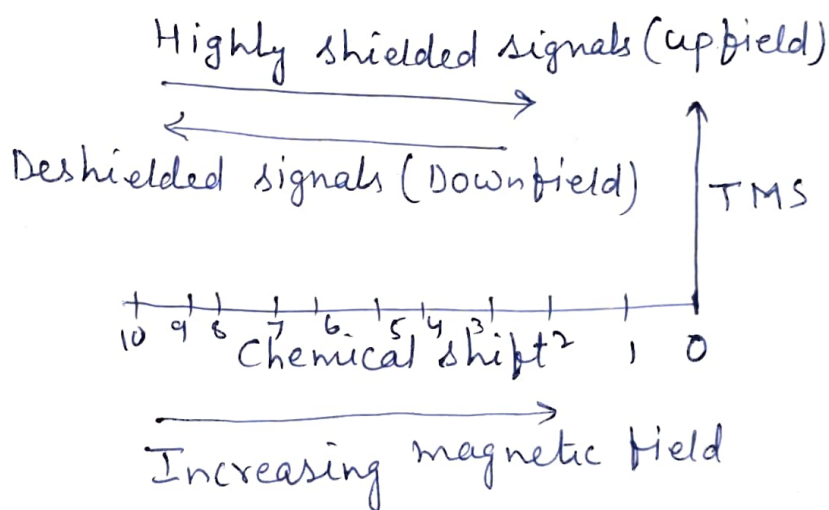 Highly shielded signals (upfield)
Deshielded signals (Downfield)
TMS
10 9 8 7 6 5 4 3 2 1 0
Chemical shift
Increasing magnetic field